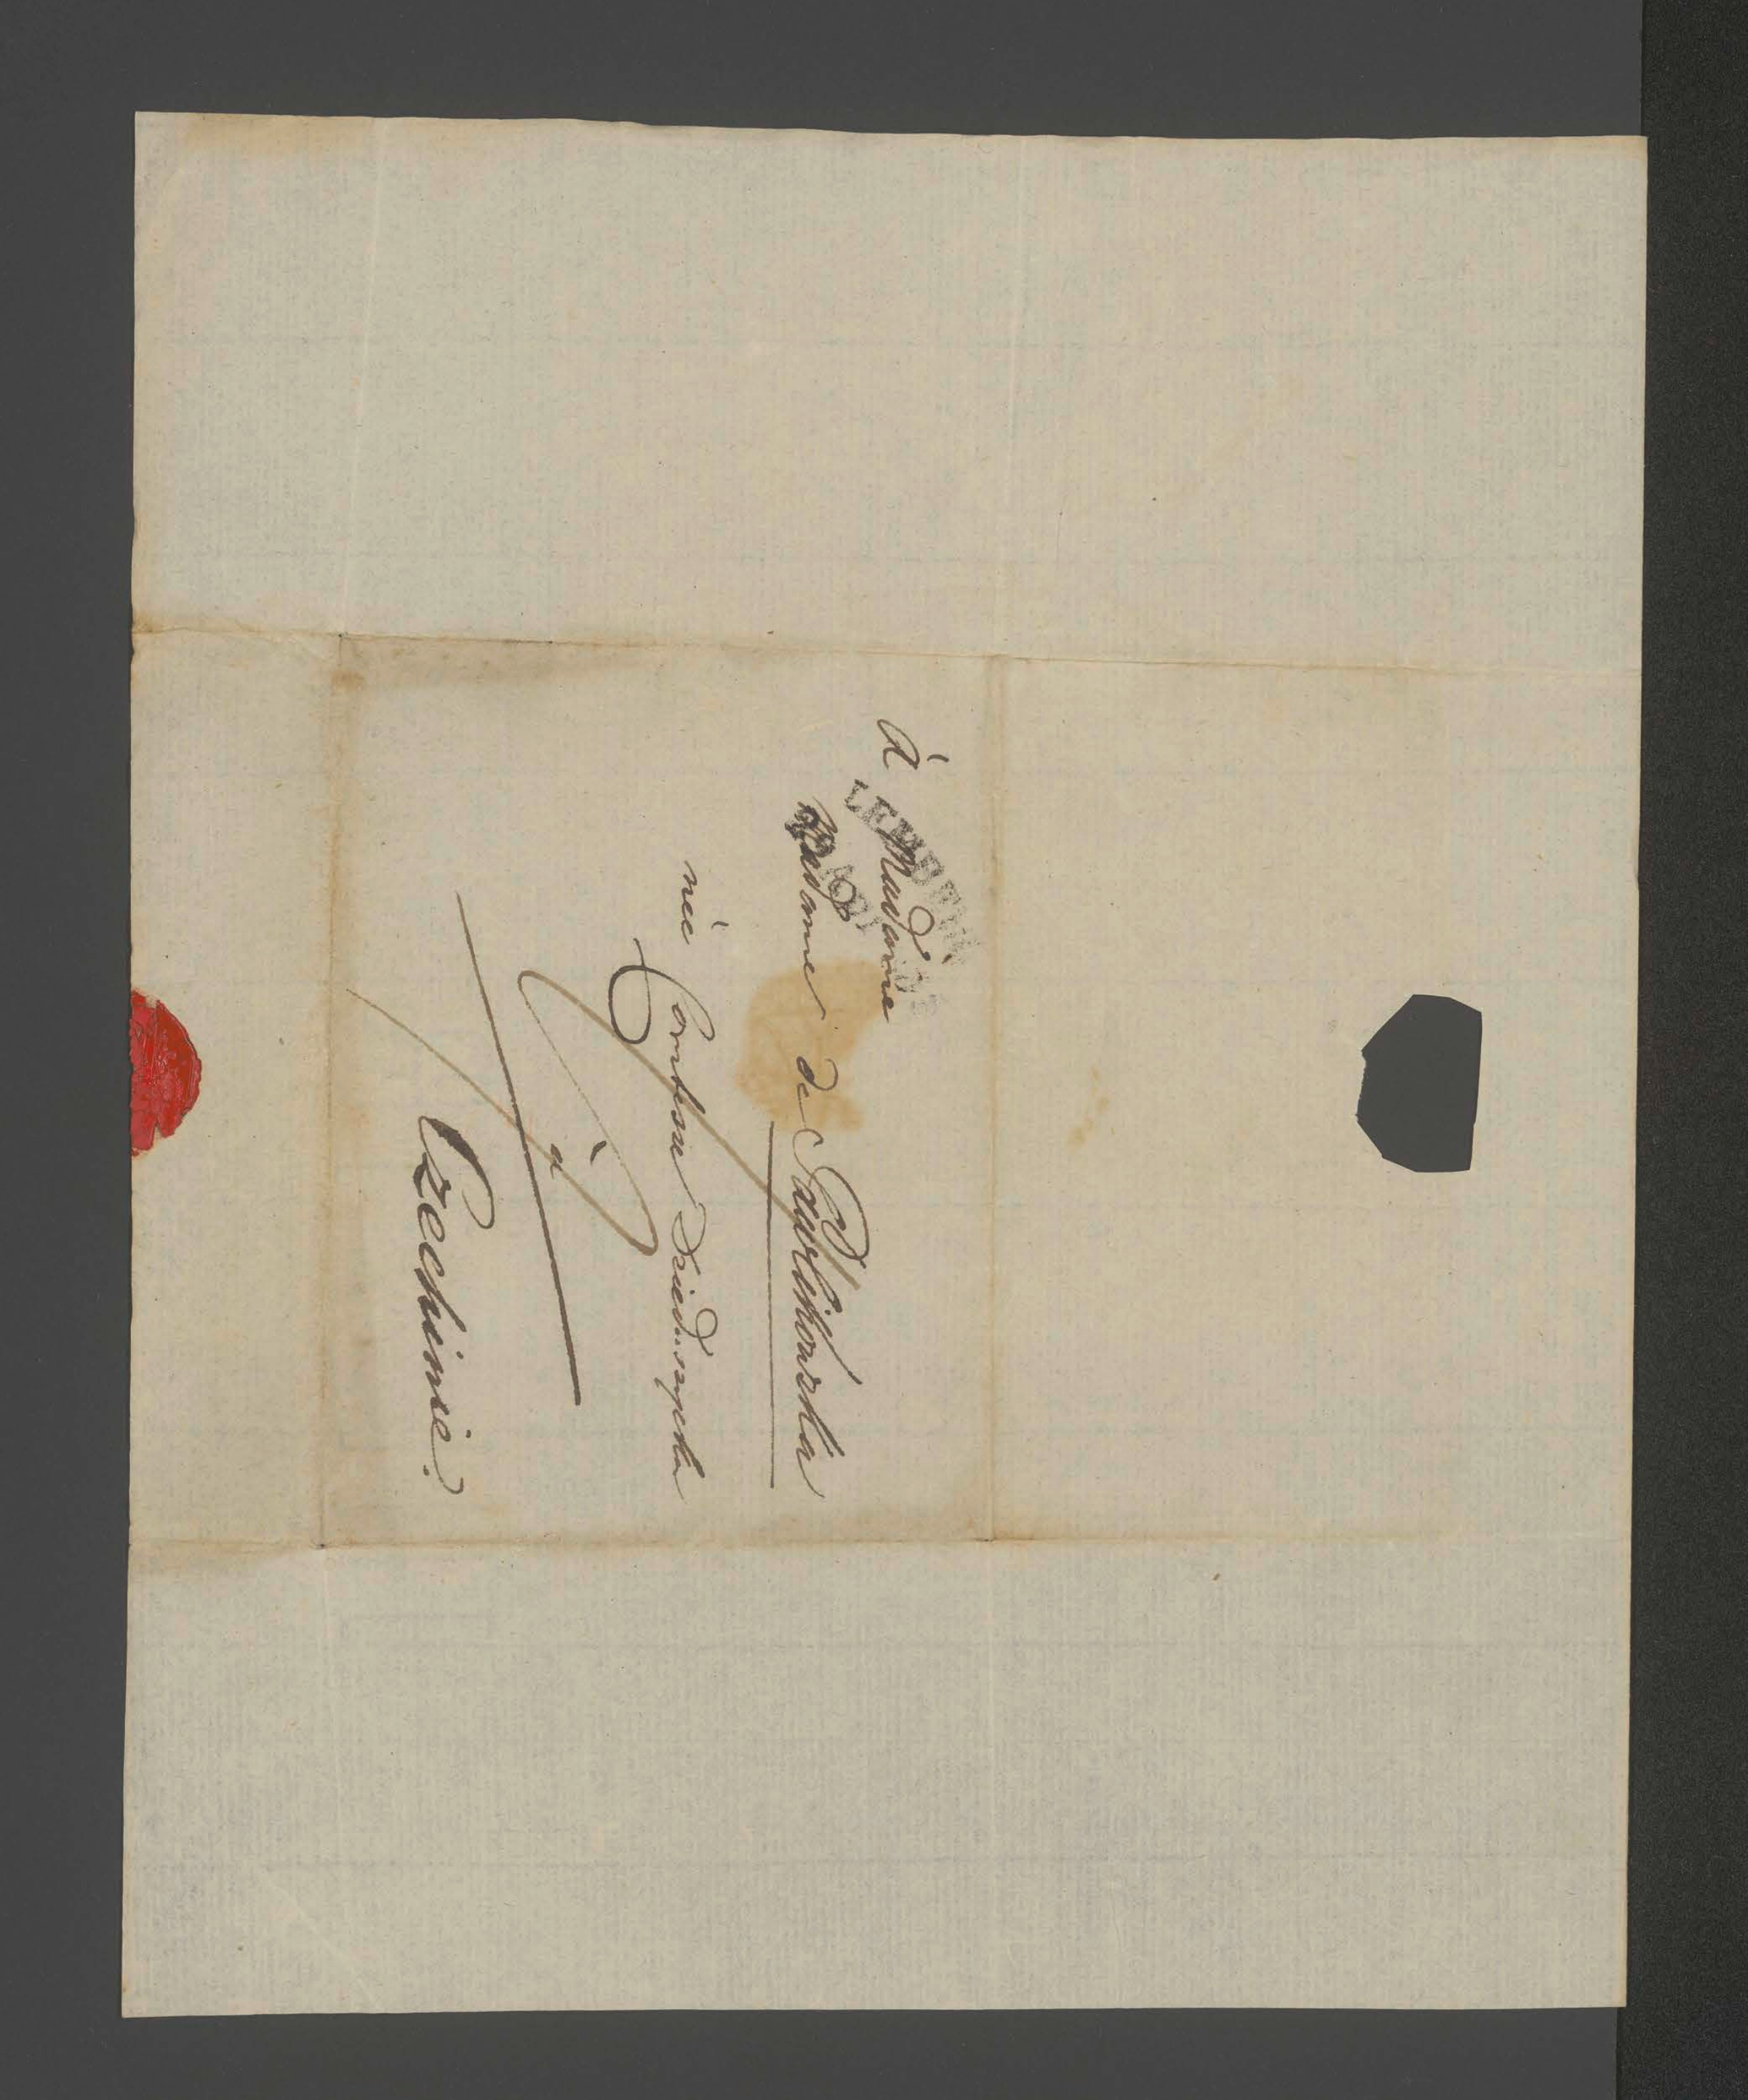 à Madame
Madame de Pawlikowska
née Comtesse Dzieduszycka
à
Czechinie.